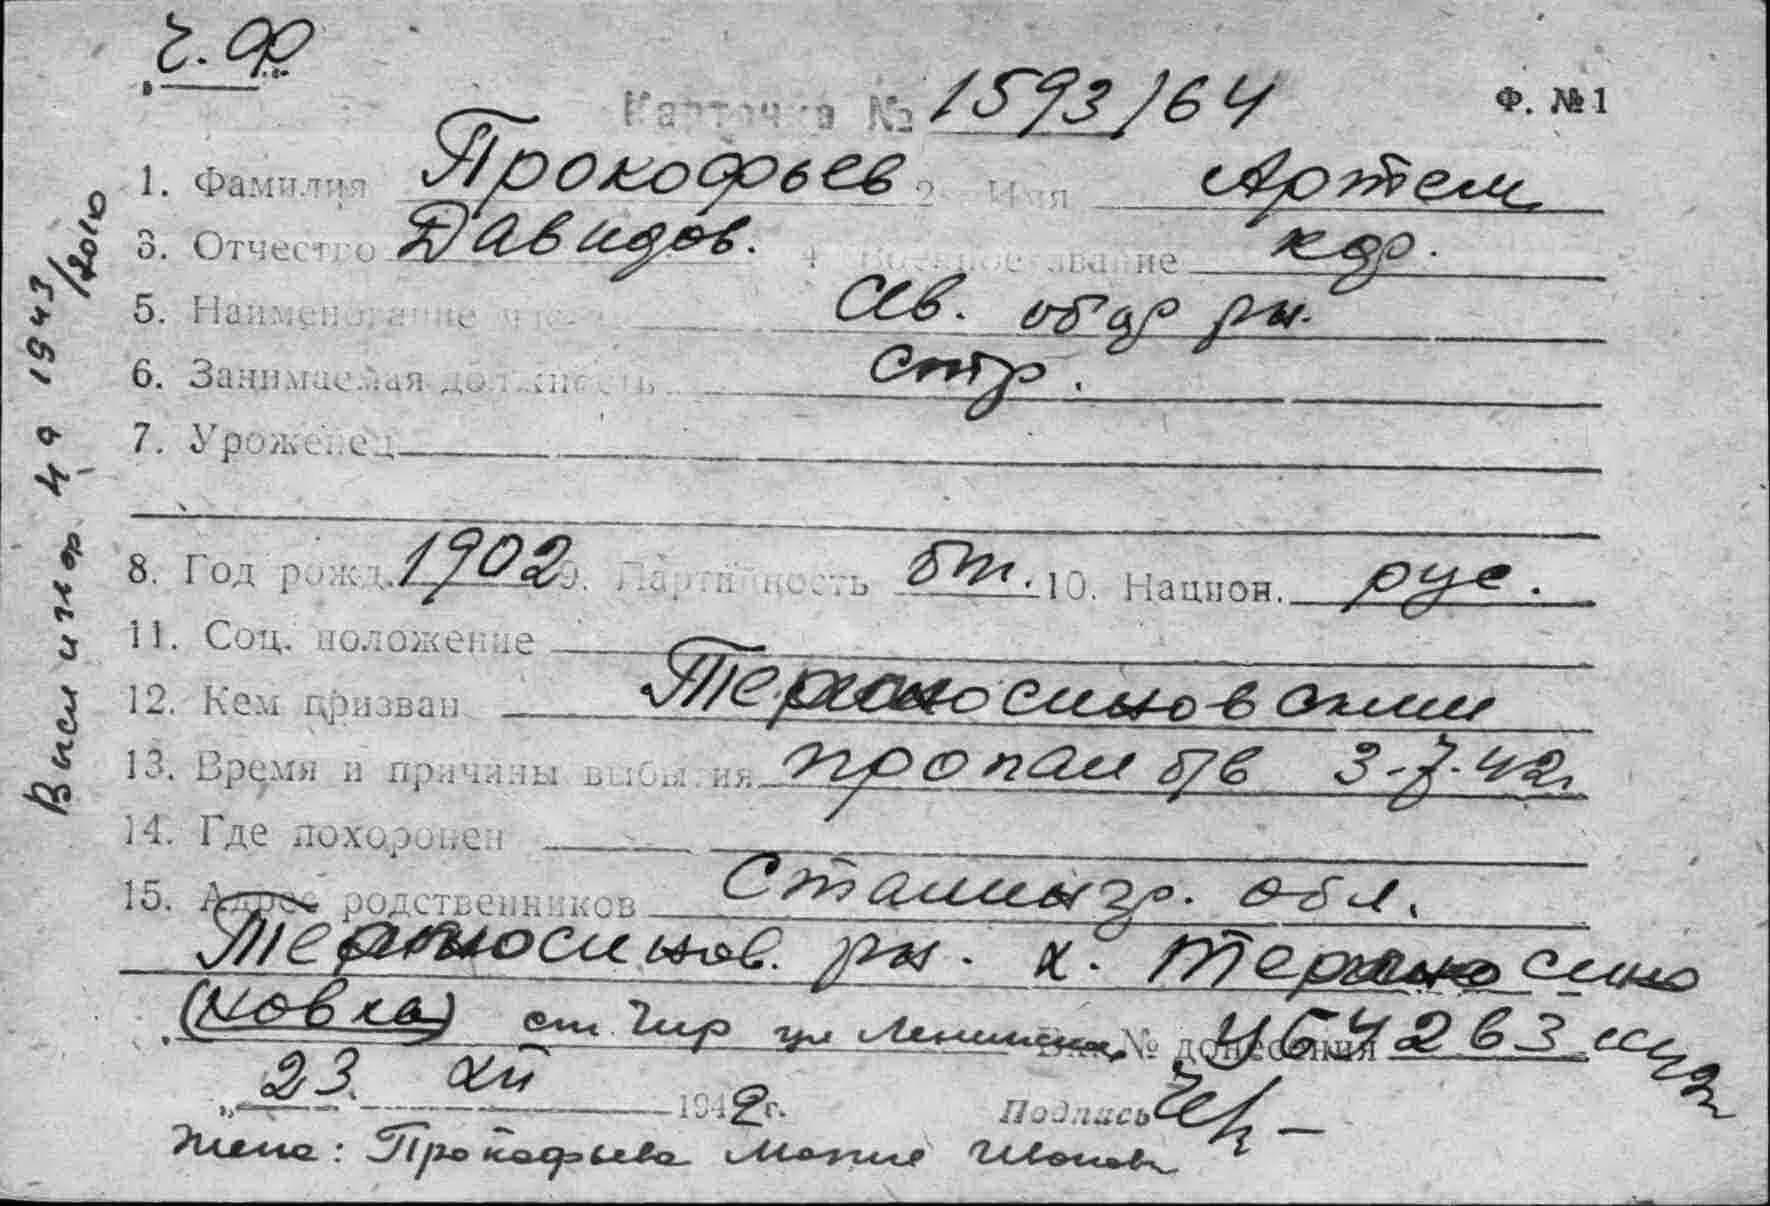 ч. Ф
Карточка № 1593/64 Ф. №1
1. Фамилия Прокофьев 2. Имя Артем
3. Отчество Давидов. 4. Военное звание кдр.
5. Наименование части Сев. обдр рн.
6. Занимаемая должность стр.
7. Уроженец
8. Год рожд. 1902 9. Партийность бп. 10. Национ. рус.
11. Соц. положение
12. Кем призван
13. Время и причины выбытия пропал б/в 3-7-42г
14. Где похоронен
15. Адрес родственников Сталингр. обл.
рн. х.
(новка) ст. Чир ул Ленинская Вх. № донесения
23. XII 1942г. Подпись
жена: Прокофьева Иванов
1943
/2010